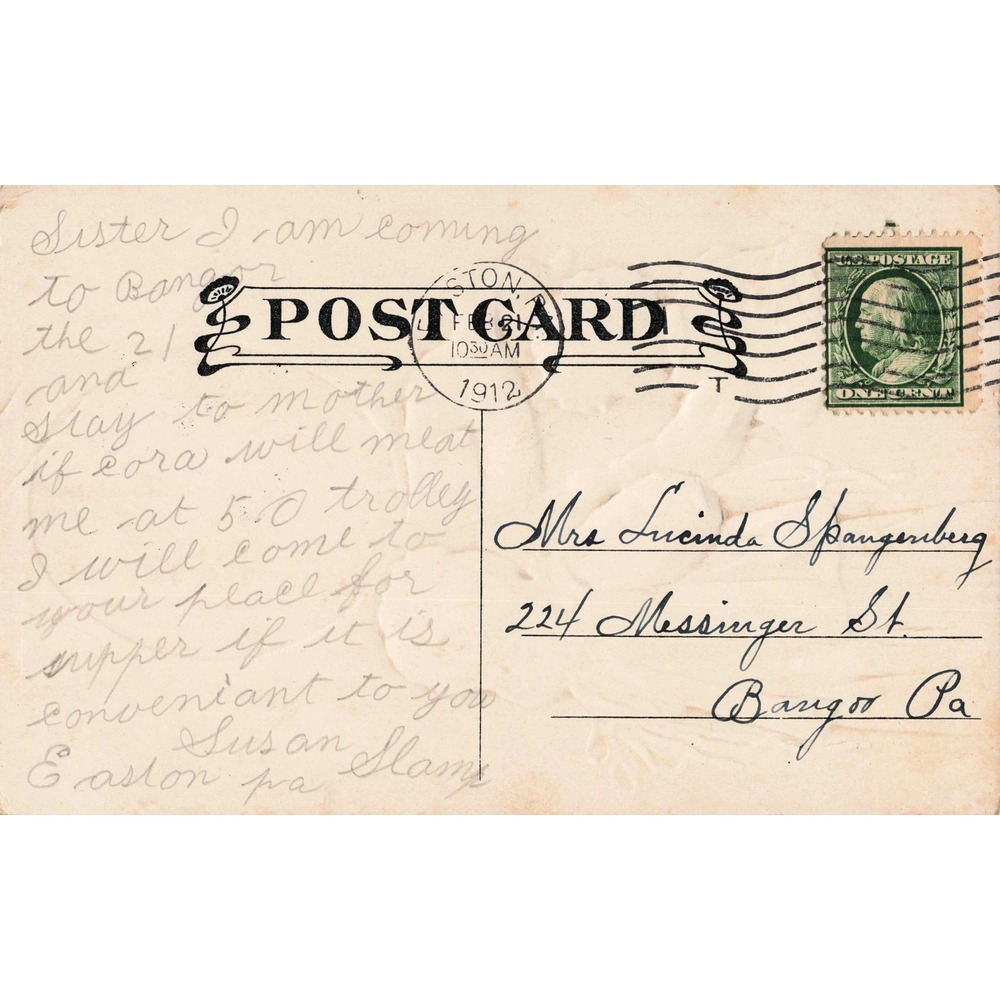 Sister I am coming
to Bangor
the 21
and
Stay to mother
if Cora will meat
me at 5.0 trolley
I will come to
your place for
supper if it is
conveniant to you
Susan
Easton pa
POST CARD
FEB 21
10 30 AM
1912
T
POSTAGE
ONE CENT
Mrs Lucinda Spangenberg
224 Messinger St.
Bangor Pa